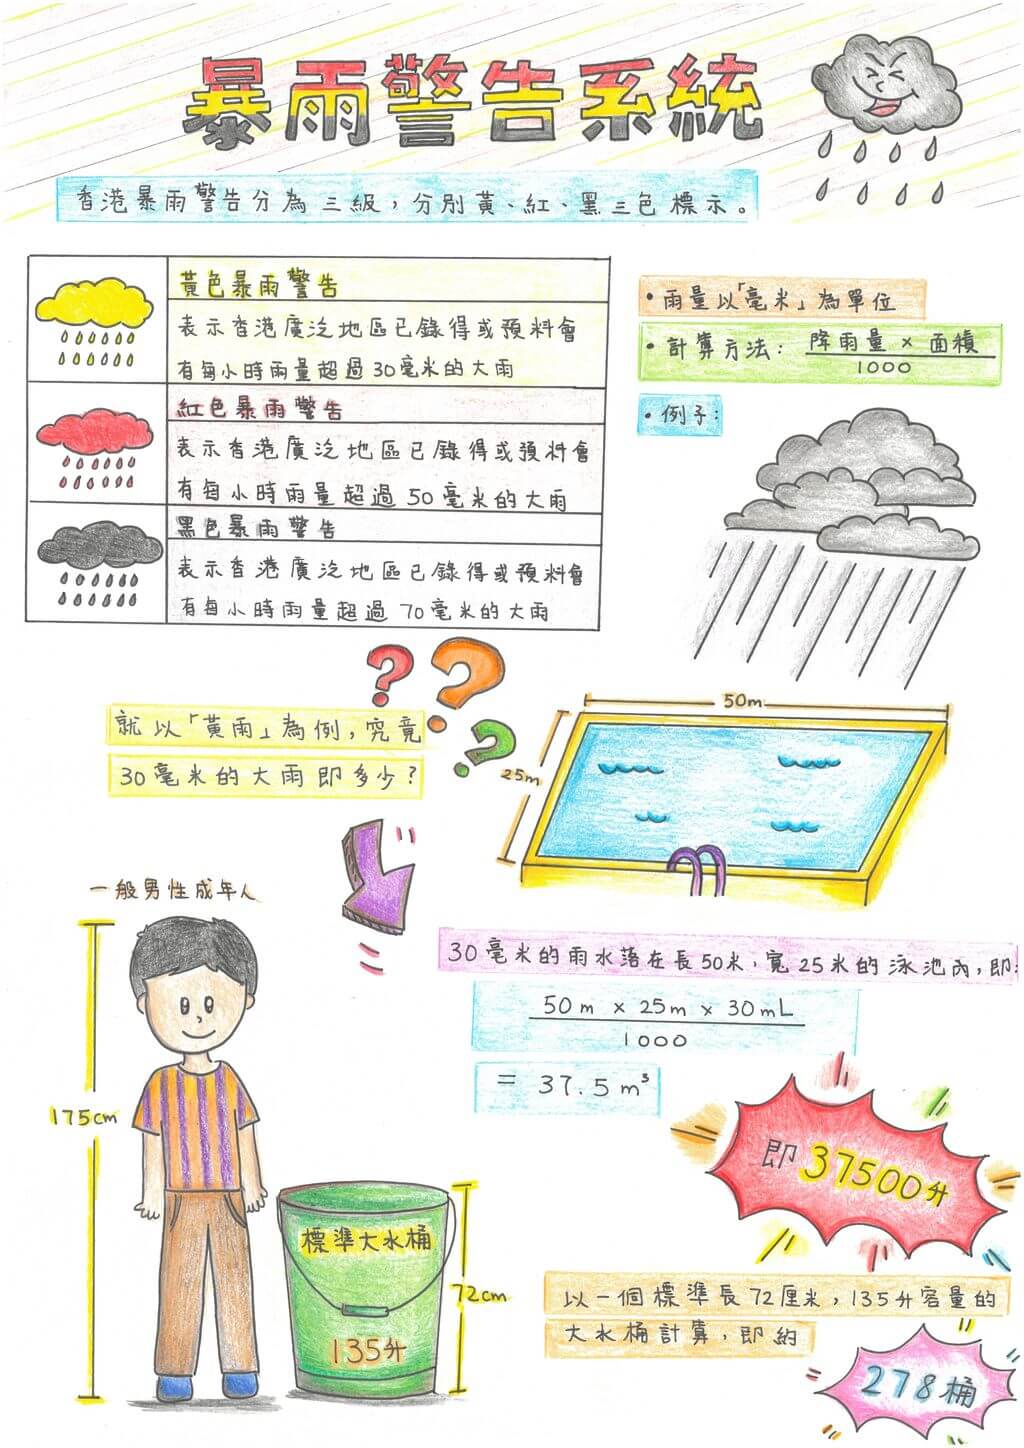 暴雨警告系統
香港暴雨警告分為三級，分別黃、紅、黑三色標示。
黃色暴雨警告
表示香港廣泛地區已錄得或預料會
有每小時雨量超過30毫米的大雨
紅色暴雨警告
表示香港廣泛地區已錄得或預料會
有每小時雨量超過50毫米的大雨
黑色暴雨警告
表示香港廣泛地區已錄得或預料會
有每小時雨量超過70毫米的大雨
•雨量以「毫米」為單位
•計算方法：降雨量 × 面積
1000
•例子：
就以「黃雨」為例，究竟
30毫米的大雨即多少？
50m
25m
一般男性成年人
175cm
標準大水桶
135升
72cm
30毫米的雨水落在長50米，寬25米的泳池內，即：
50m × 25m × 30mL
1000
= 37.5 m³
即37500升
以一個標準長72厘米，135升容量的
大水桶計算，即約
278桶